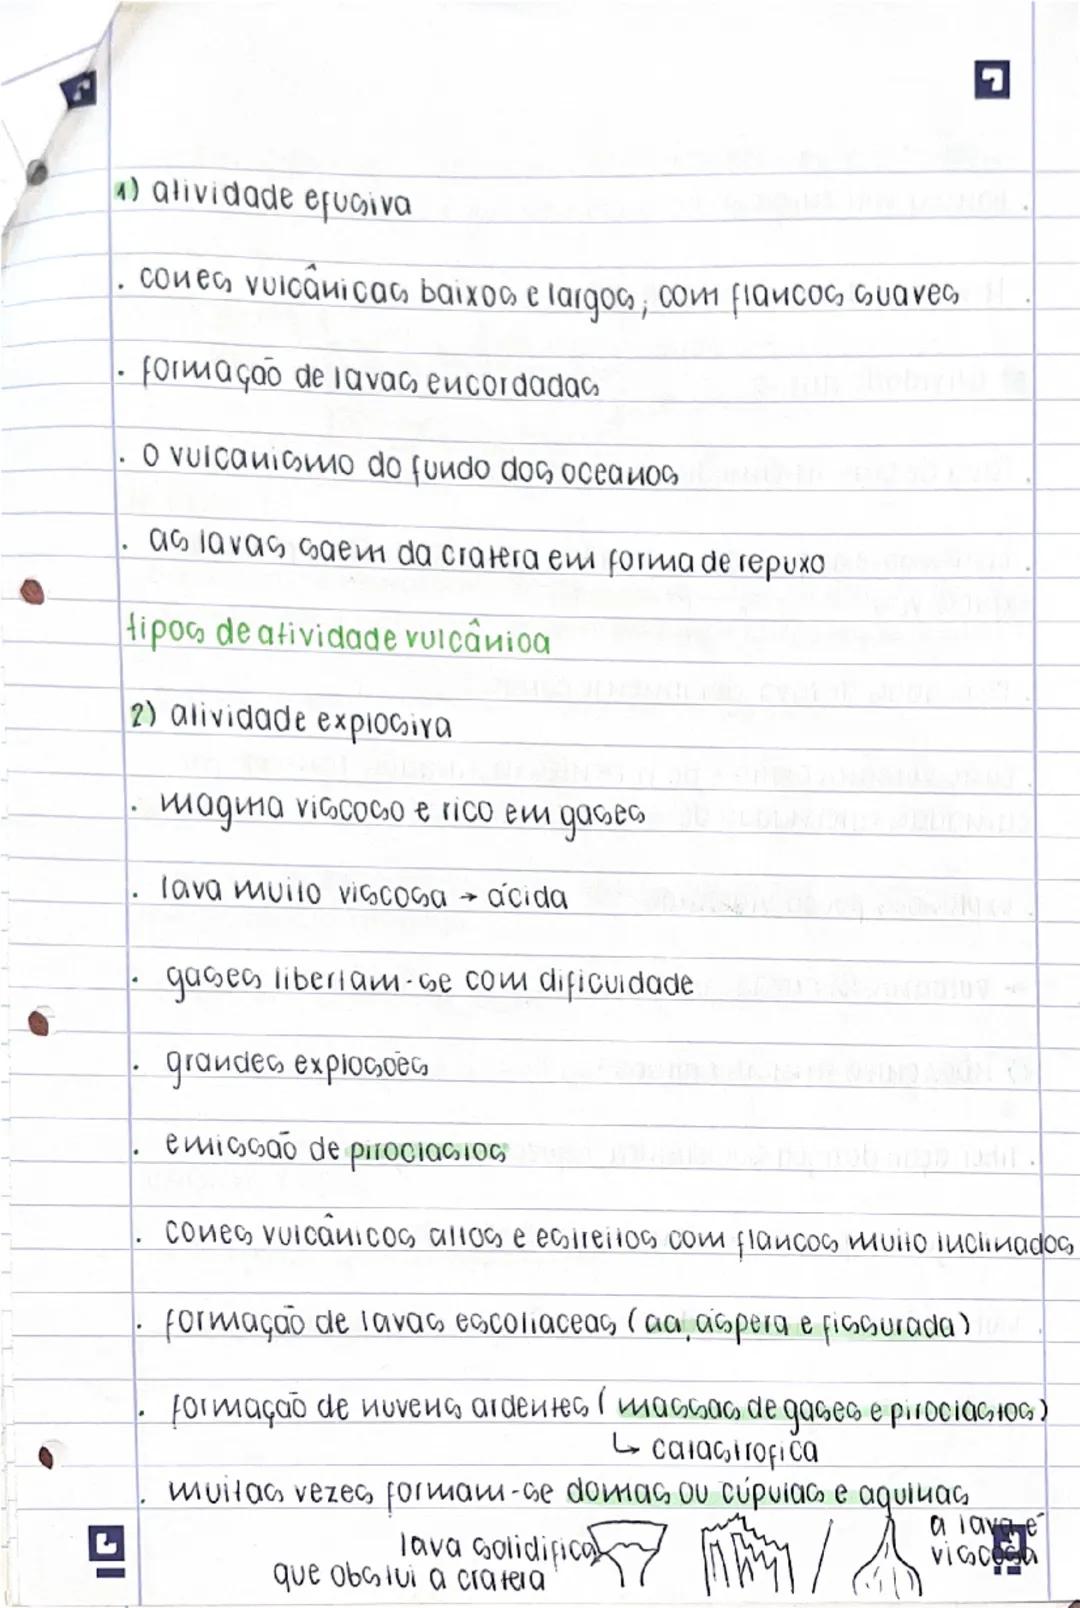 1) atividade efusiva
. cones vulcânicas baixos e largos, com flancos suaves
. formação de lavas encordadas
. o vulcanismo do fundo dos oceanos
. as lavas saem da cratera em forma de repuxo
tipos de atividade vulcânica
2) atividade explosiva
. magma viscoso e rico em gases
. lava muito viscosa → ácida
. gases libertam-se com dificuldade
. grandes explosões
. emissão de piroclastos
. cones vulcânicos altos e estreitos com flancos muito inclinados
. formação de lavas escoliaceas (aa, áspera e fissurada)
. formação de nuvens ardentes (massas de gases e piroclastos)
↳ catastrofica
. muitas vezes formam-se domas ou cúpulas e agulhas
lava solidifica
que obstui a cratera
a lava é
viscosa